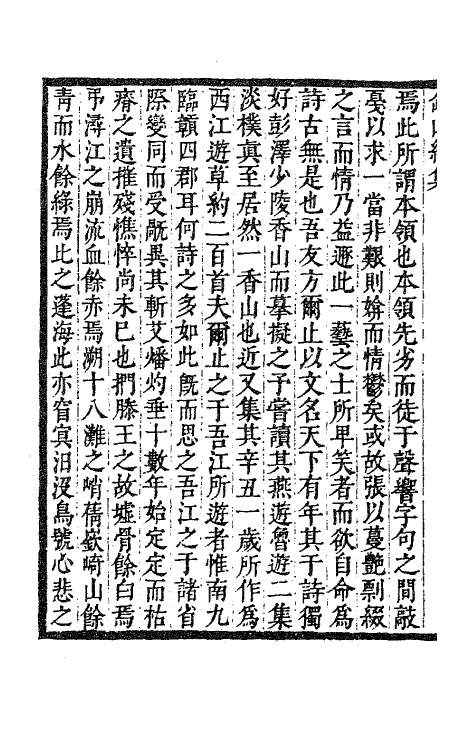 焉此所謂本領也本領先劣而徒于聲響字句之間敲
戞以求一當非艱則媕而情鬱矣或故張以蔓艶剽綴
之言而情乃益遯此一藝之士所卑笑者而欲自命爲
詩古無是也吾友方爾止以文名天下有年其于詩獨
好彭澤少陵香山而摹擬之予嘗讀其燕遊魯遊二集
淡樸真至居然一香山也近又集其辛丑一歲所作爲
西江遊草約二百首夫爾止之于吾江所遊者惟南九
臨贛四郡耳何詩之多如此旣而思之吾江之于諸省
際變同而受戩異其斬艾燔灼垂十數年始定定而枯
瘠之遺摧殘憔悴尚未已也捫滕王之故墟骨餘白焉
弔潯江之崩流血餘赤焉溯十八灘之峭蒨嶔崎山餘
青而水餘綠焉比之蓬海此亦窅㝠汩沒鳥號心悲之